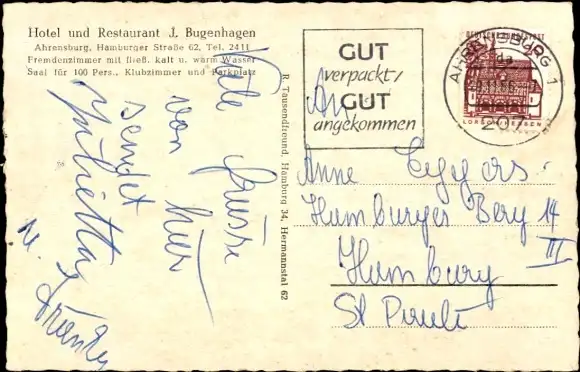 Hotel und Restaurant J. Bugenhagen
Ahrensburg, Hamburger Straße 62, Tel. 2411
Fremdenzimmer mit fließ. kalt u. warm Wasser
Saal für 100 Pers., Klubzimmer und Parkplatz
Viele Grüsse
von hier
sendet
R. Tausendfreund, Hamburg 34, Hermannstal 62
GUT
verpackt/
GUT
angekommen
AHRENSBURG 1
207
DEUTSCHE BUNDESPOST
LORSCH/HESSEN
An
Anne Eggers
Hamburger Berg 14
III
Hamburg
St Pauli